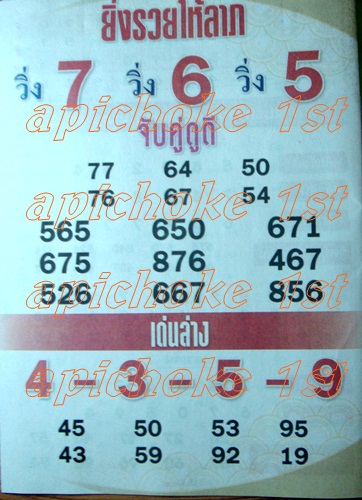 ยิ่งรวยให้ลาภ
วิ่ง 7 วิ่ง 6 วิ่ง 5
apichoke 1st
จับคู่ดูดี
77 64 50
76 67 54
apichoke 1st
565 650 671
675 876 467
526 667 856
apichoke 1st
เด่นล่าง
4 – 3 – 5 – 9
apichoke 1st
45 50 53 95
43 59 92 19
apichoke 1st